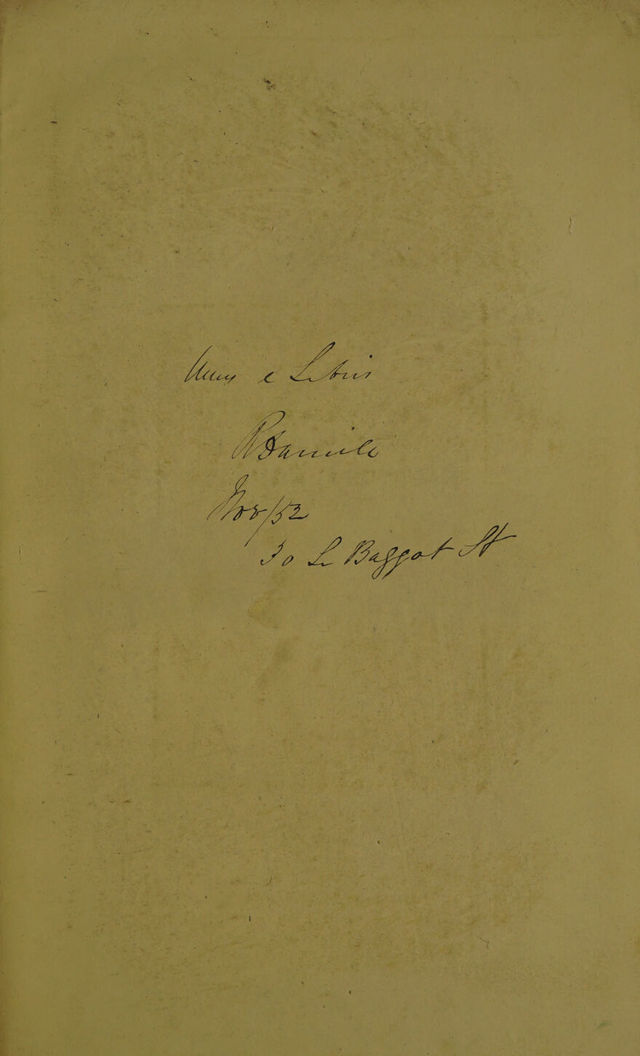 Unus e Libris
Nov/52
30 Lr Baggot St